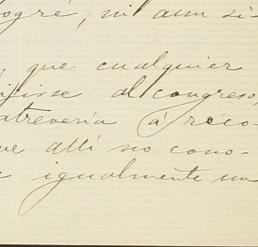 logré, ni aun si-
, que cualquier
al congreso,
atrevería á reco-
ue allí no cono-
igualmente un